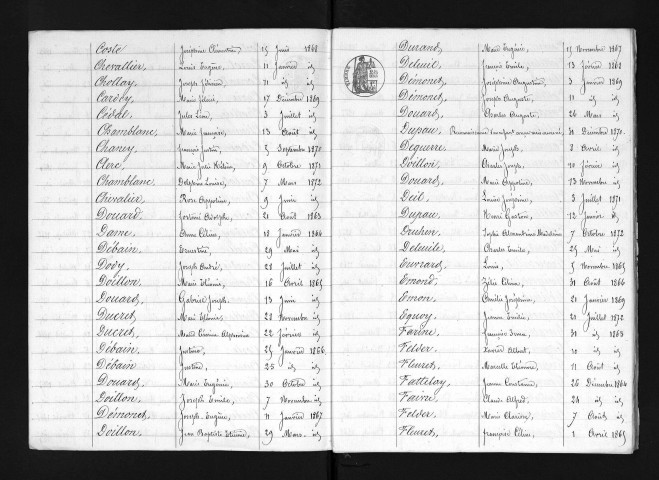 Coste Joséphine Clémentine 15 Juin 1868
Chevallier, Louis Eugène, 11 Janvier id
Chollay, Joseph 31 id id
Cardey, Marie 17 Décembre 1869
Cédal, Jules Léon, 3 Juillet id
Chamblanc, Marie Françoise, 13 Août id
Chaney, François Justin, 5 Septembre 1870
Clerc, Marie 9 Octobre 1871
Chamblanc, Delphine Louise, 7 Mars 1872
Chevalier, Rose Appoline, 9 Juin id
Douard, Adolphe, 21 Août 1863
Dame, Anne Céline, 18 Janvier 1864
Débain, Ernestine, 29 Mai id
Dody, Joseph André, 28 Juillet id
Doillon, Marie 16 Avril 1865
Douard, Gabriel Joseph, 13 Juin id
Ducret, Marie 22 Novembre id
Ducret, Marie 22 Février id
Débain, Justine, 25 Janvier 1866
Débain Justine, 25 id id
Douard, Marie Eugénie, 30 Octobre id
Doillon, Joseph Emile, 7 Novembre id
Démonet, Joseph Eugène, 11 Janvier 1867
Doillon, Jean Baptiste 29 Mars id
Durand, Marie Eugénie, 15 Novembre 1867
Deleuil, François Emile, 13 Février 1868
Démonet, Joséphine Augustine, 3 Janvier 1869
Démonet, Joseph Auguste, 11 id id
Douard, Charles Auguste, 26 Mars id
Dupau, 31 Décembre 1870
Dequerre, Marie Joseph, 8 Avril id
Doillon, Charles Joseph, 10 Février id
Douard, Marie Appoline, 13 Novembre id
Deil, Louise Joséphine, 3 Juillet 1871
Dupau, Henri Gaston, 12 Janvier id
Druhen, Sophie Alexandrine 7 Octobre 1872
Deleuile, Charles Emile, 25 Mai id
Euvrard, Louis, 5 Novembre 1865
Emond, Zélie Céline, 31 Août 1866
Emon, Emilie Joséphine, 21 Janvier 1869
Equoy, Jeanne Emilie, 21 Juillet 1872
Farine, François 31 id 1863
Felder, Xavier Albert, 10 id id
Fleuret, Marcelle 11 Août id
Fattelay, Jeanne Constance, 26 Décembre 1864
Faivre, Claude Alfred, 24 id id
Felder, Marie 7 Août id
Fleuret, Françoise Céline, 1 Avril 1865